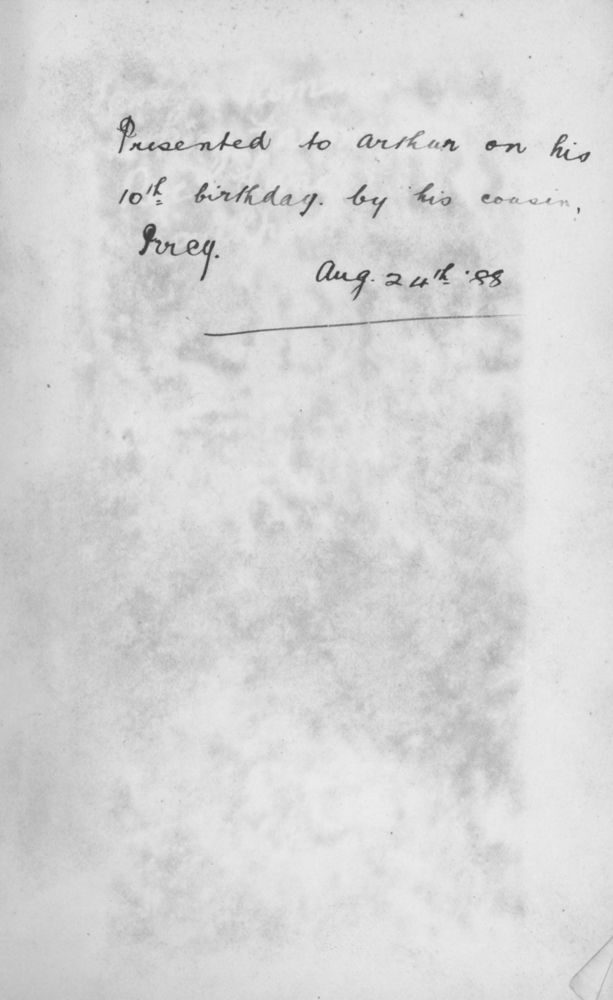 Presented to Arthur on his
10th birthday. by his cousin,
Aug. 24th '88